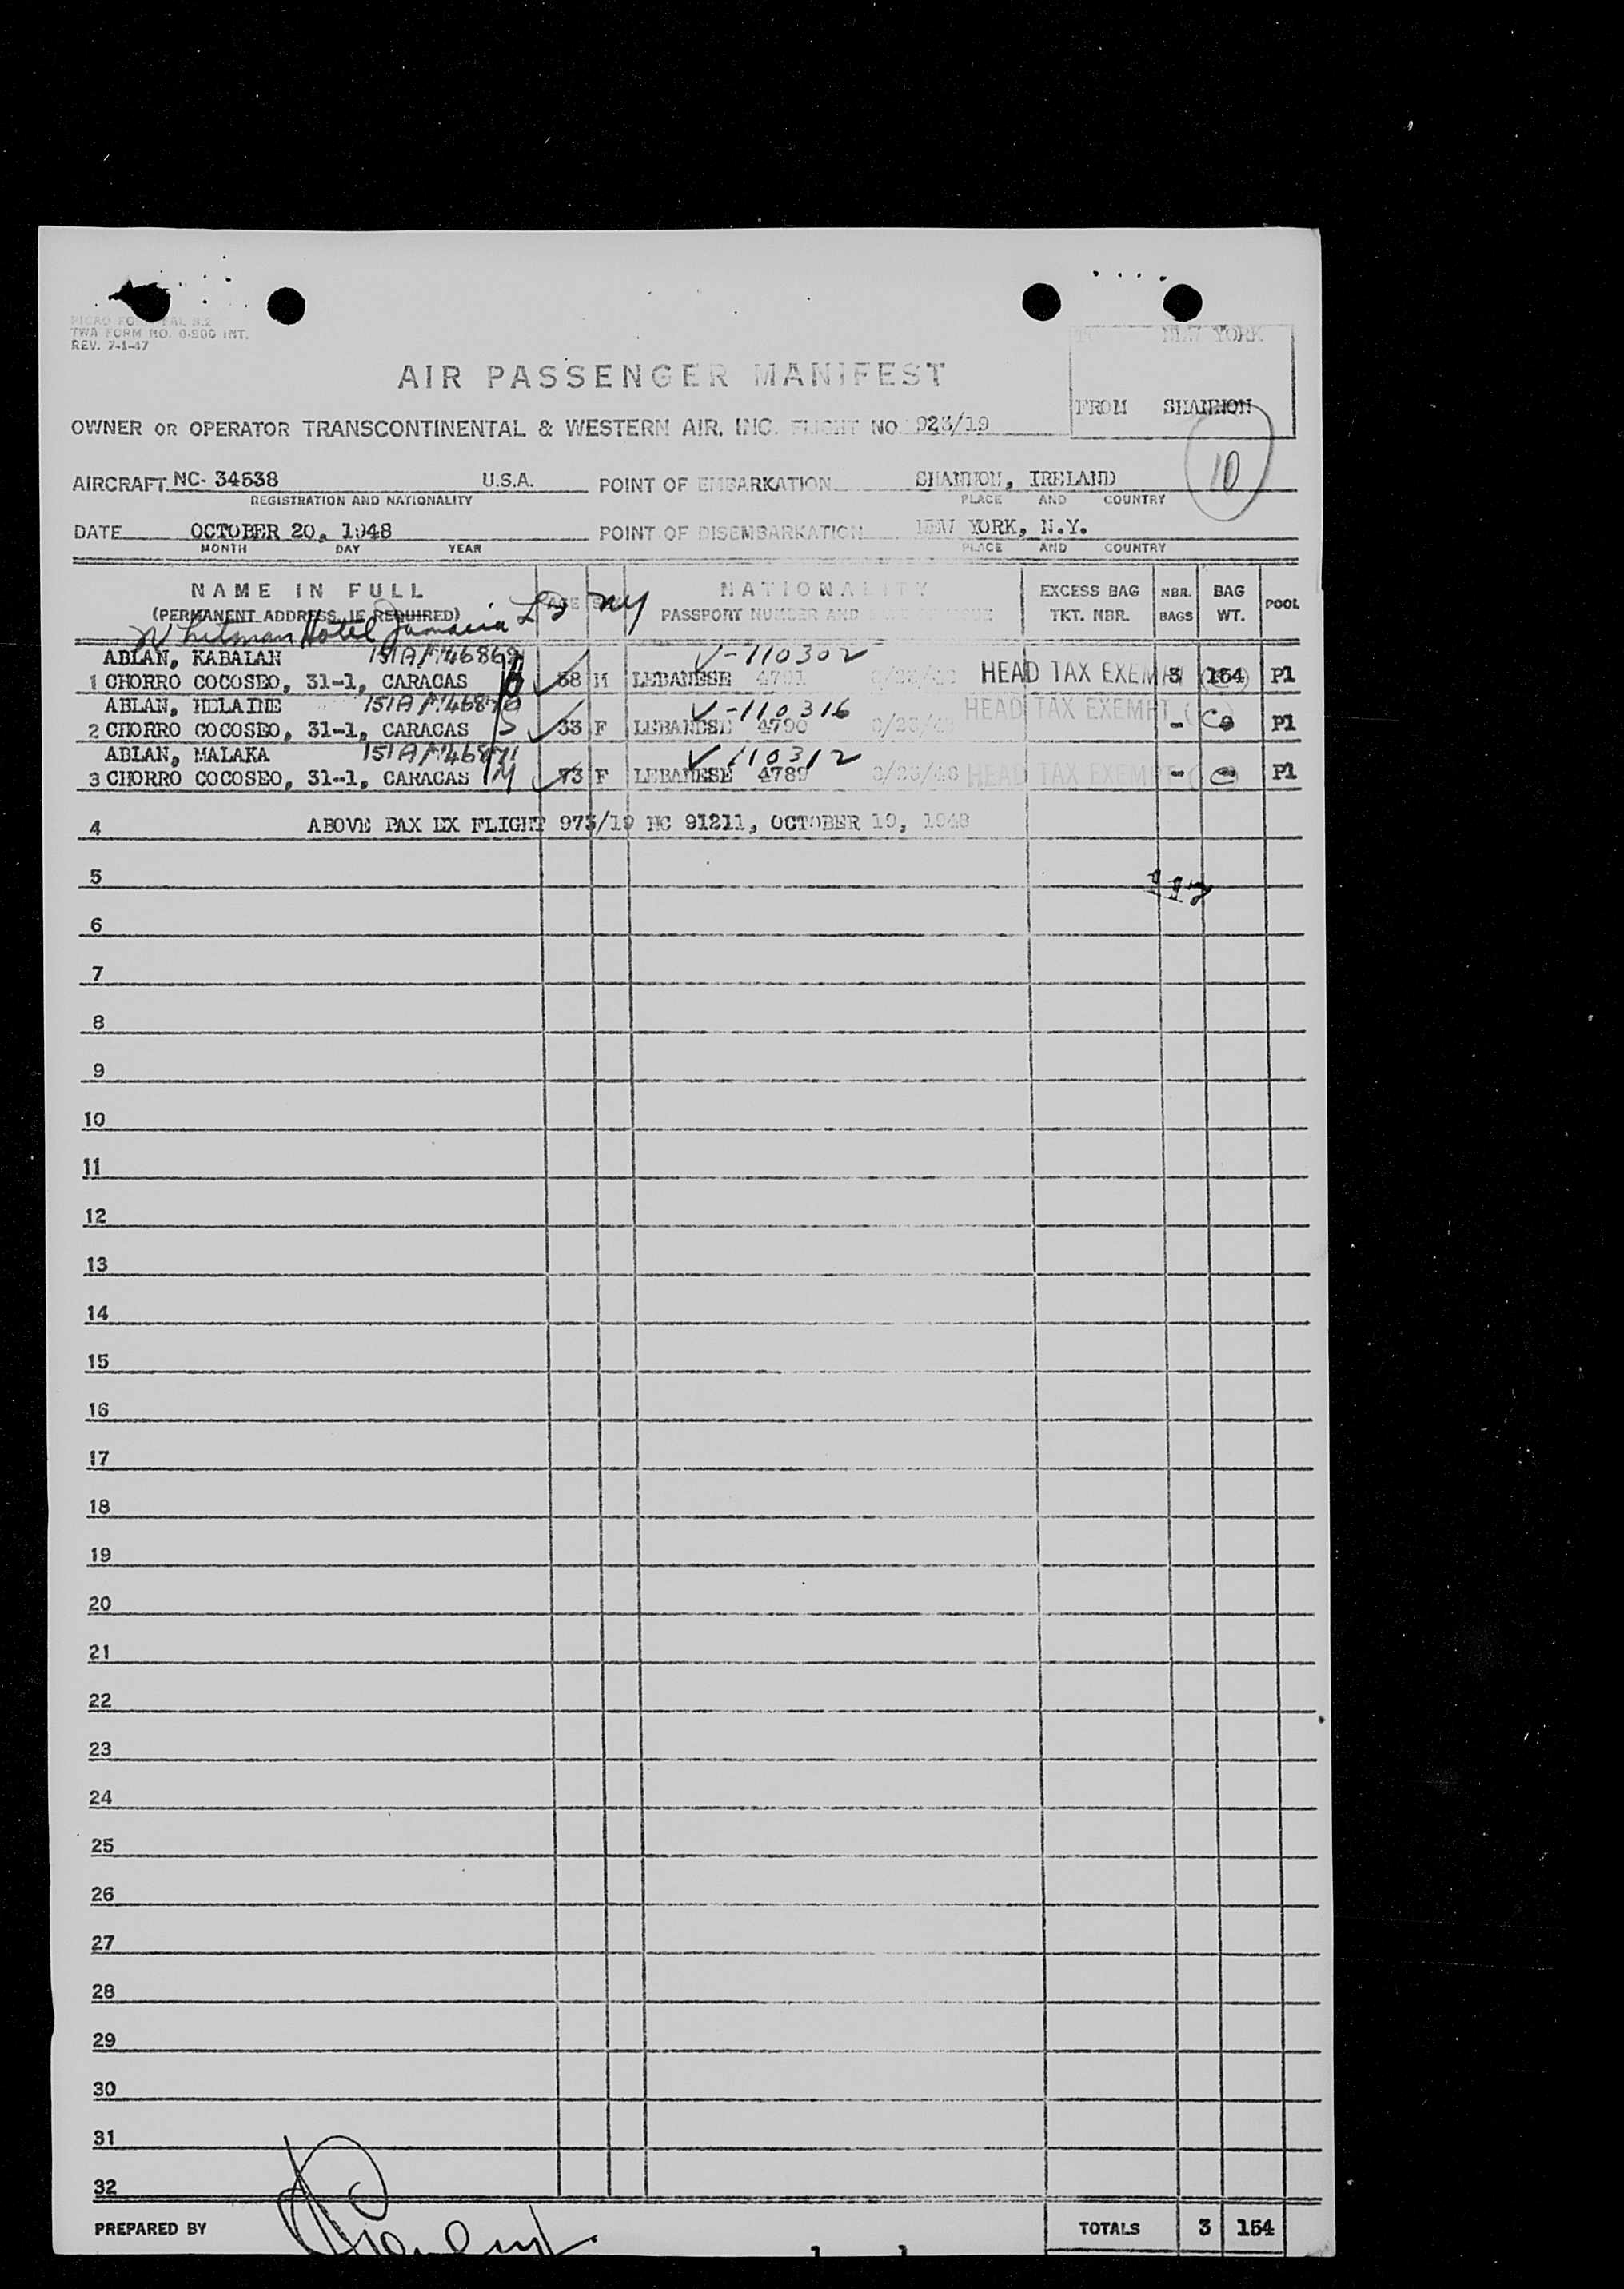 TWA FORM NO. 0-900 INT.
REV. 7-1-47
NEW YORK
FROM SHANNON
10
AIR PASSENGER MANIFEST
OWNER OR OPERATOR TRANSCONTINENTAL & WESTERN AIR, INC. FLIGHT NO 923/19
AIRCRAFT NC- 34538 U.S.A. POINT OF EMBARKATION SHANNON, IRELAND
REGISTRATION AND NATIONALITY PLACE AND COUNTRY
DATE OCTOBER 20, 1948 POINT OF DISEMBARKATION NEW YORK, N.Y.
MONTH DAY YEAR PLACE AND COUNTRY
NAME IN FULL AGE NATIONALITY EXCESS BAG NBR. BAG POOL
(PERMANENT ADDRESS, IF REQUIRED) PASSPORT NUMBER AND TKT. NBR. BAGS WT.
Whitman Hotel Jamaica L I NY
ABLAN, KABALAN V-110302
1 CHORRO COCOSEO, 31-1, CARACAS M LEBANESE 4791 HEAD TAX EXEMPT 3 154 P1
ABLAN, HELAINE V-110316
2 CHORRO COCOSEO, 31-1, CARACAS S 33 F LEBANESE 4790 HEAD TAX EXEMPT - P1
ABLAN, MALAKA V 110312
3 CHORRO COCOSEO, 31-1, CARACAS M 73 F LEBANESE 4789 HEAD TAX EXEMPT - P1
4 ABOVE PAX EX FLIGHT 973/19 NC 91211, OCTOBER 19, 1948
5
6
7
8
9
10
11
12
13
14
15
16
17
18
19
20
21
22
23
24
25
26
27
28
29
30
31
32
PREPARED BY TOTALS 3 154